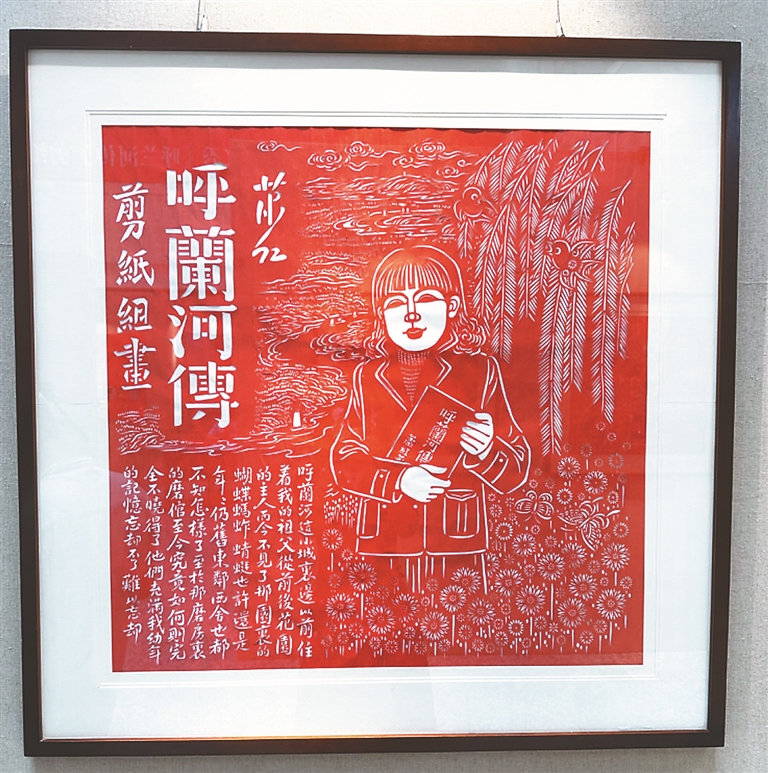 萧红
呼蘭河傳
剪紙組畫
呼蘭河傳
呼蘭河這小城裏邊以前住
着我的祖父從前後花園
的主人今不見了那園裏的
蝴蝶螞蚱蜻蜓也許還是
年、仍舊東鄰西舍也都
不知怎樣了至於那磨房裏
的磨倌至今究竟如何則完
全不曉得了他們充滿我幼年
的記憶忘却不了難以忘却